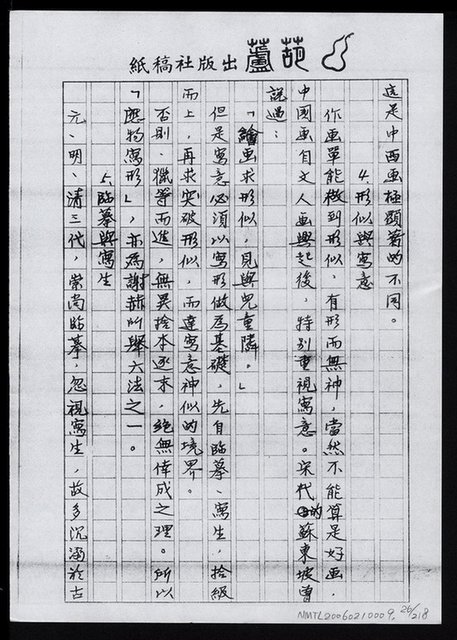 紙稿社版出蘆葩
這是中西画極顯著的不同。
4.形似與寫意
作画單能做到形似，有形而無神，當然不能算是好画，
中國画自文人画興起後，特別重視寫意。宋代的蘇東坡曾
說過：
「繪画求形似，見與兒童隣。」
但是寫意必須以寫形做為基礎，先自臨摹、寫生，拾級
而上，再求突破形似，而達寫意神似的境界。
否則，獵等而進，無異捨本逐末，絕無倖成之理。所以
「應物寫形」，亦為謝赫所舉六法之一。
5.臨摹與寫生
元、明、清三代，崇尚臨摹，忽視寫生，故多沉湎於古
NMTL20060210009, 26/218